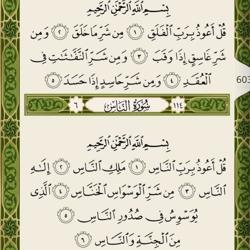 بِسْمِ اللَّهِ الرَّحْمَٰنِ الرَّحِيمِ
قُلْ أَعُوذُ بِرَبِّ الْفَلَقِ ١ مِن شَرِّ مَا خَلَقَ ٢ وَمِن
شَرِّ غَاسِقٍ إِذَا وَقَبَ ٣ وَمِن شَرِّ النَّفَّاثَاتِ فِي
الْعُقَدِ ٤ وَمِن شَرِّ حَاسِدٍ إِذَا حَسَدَ ٥
١١٤ سُورَةُ النَّاسِ ٦
بِسْمِ اللَّهِ الرَّحْمَٰنِ الرَّحِيمِ
قُلْ أَعُوذُ بِرَبِّ النَّاسِ ١ مَلِكِ النَّاسِ ٢ إِلَٰهِ
النَّاسِ ٣ مِن شَرِّ الْوَسْوَاسِ الْخَنَّاسِ ٤ الَّذِي
يُوَسْوِسُ فِي صُدُورِ النَّاسِ ٥
مِنَ الْجِنَّةِ وَالنَّاسِ ٦
603